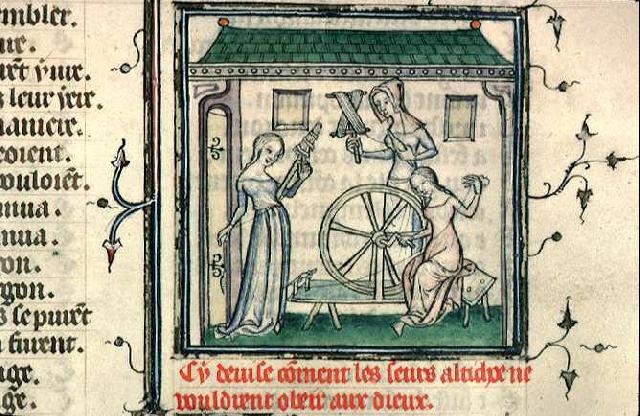 mbler.
ure.
urẽt ỹ uir.
s leur ieir.
maniere.
eoient.
vouloiẽt.
mua.
nua.
on.
gon.
s se puirẽt
a furent.
nge.
ge.
Cy deuise cõment les seurs altichoe ne
vouldrent obeir aux dieux.